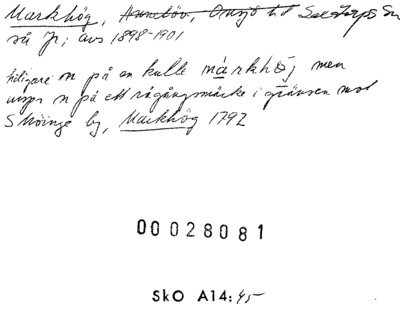 Markhög, Annelöv, Onsjö hd Saxtorps sn
så Jr; avs 1898-1901
tidigare n på en kulle márkhö̱j men
urspr n på ett rågångsmärke i gränsen mot
S Möinge by, Markhög 1792
00028081
SkO A14:45